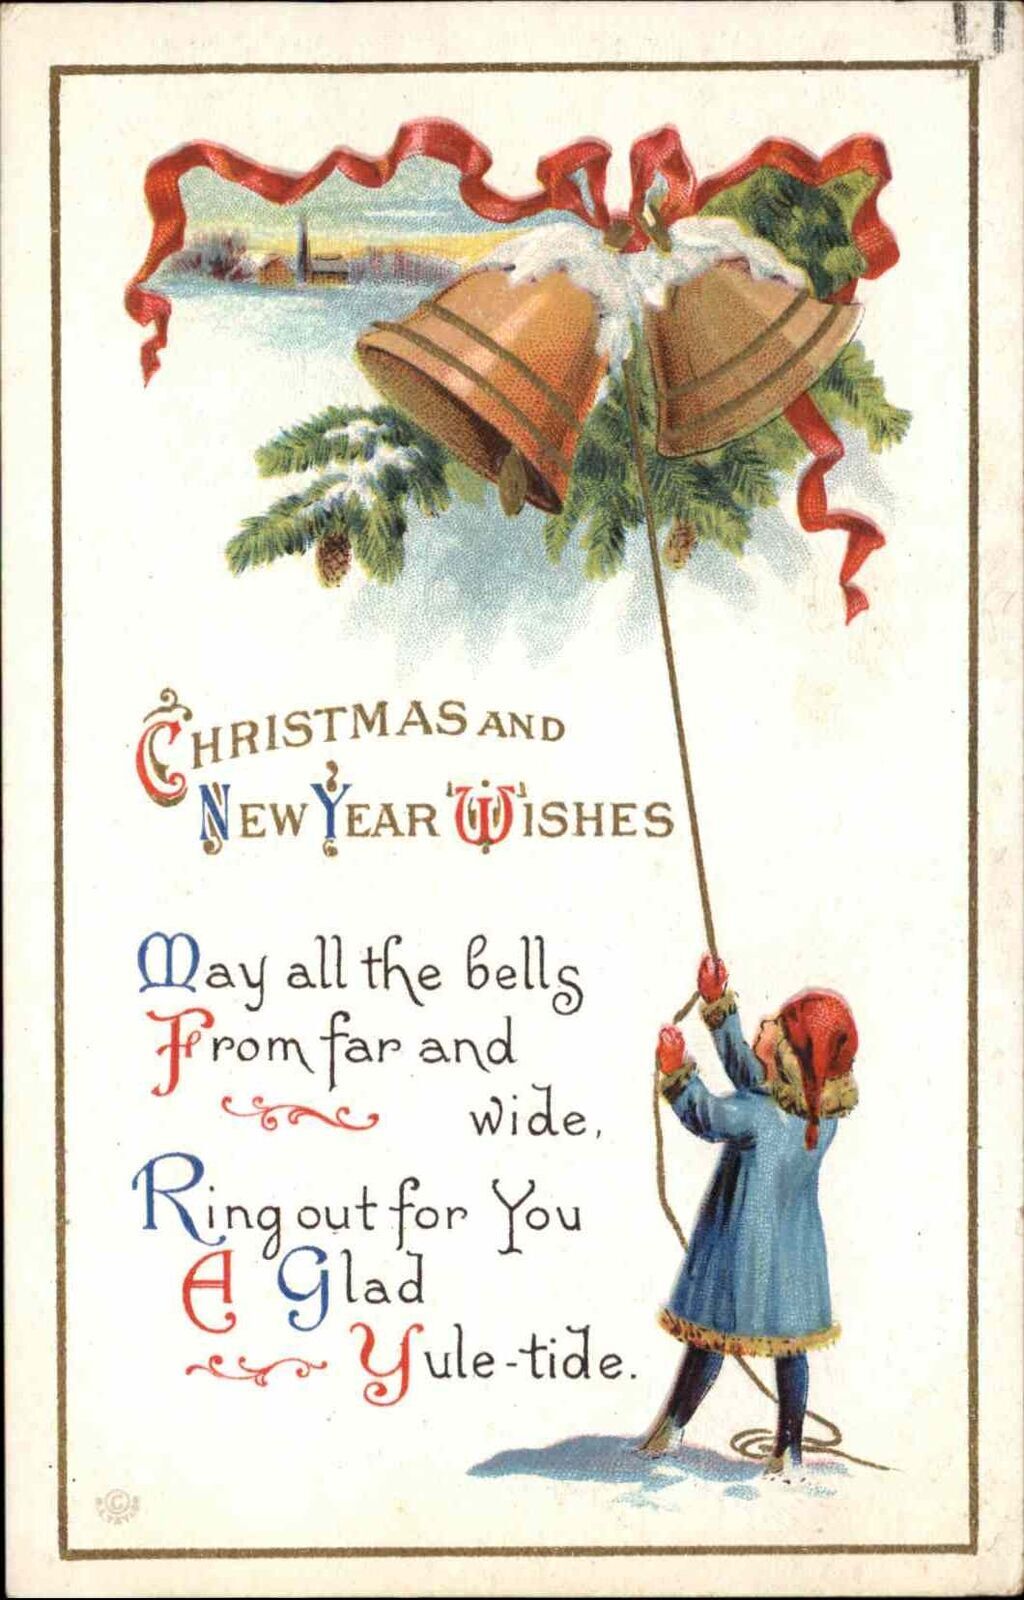 CHRISTMAS AND
NEW YEAR WISHES
May all the bells
From far and
wide,
Ring out for You
A Glad
Yule-tide.